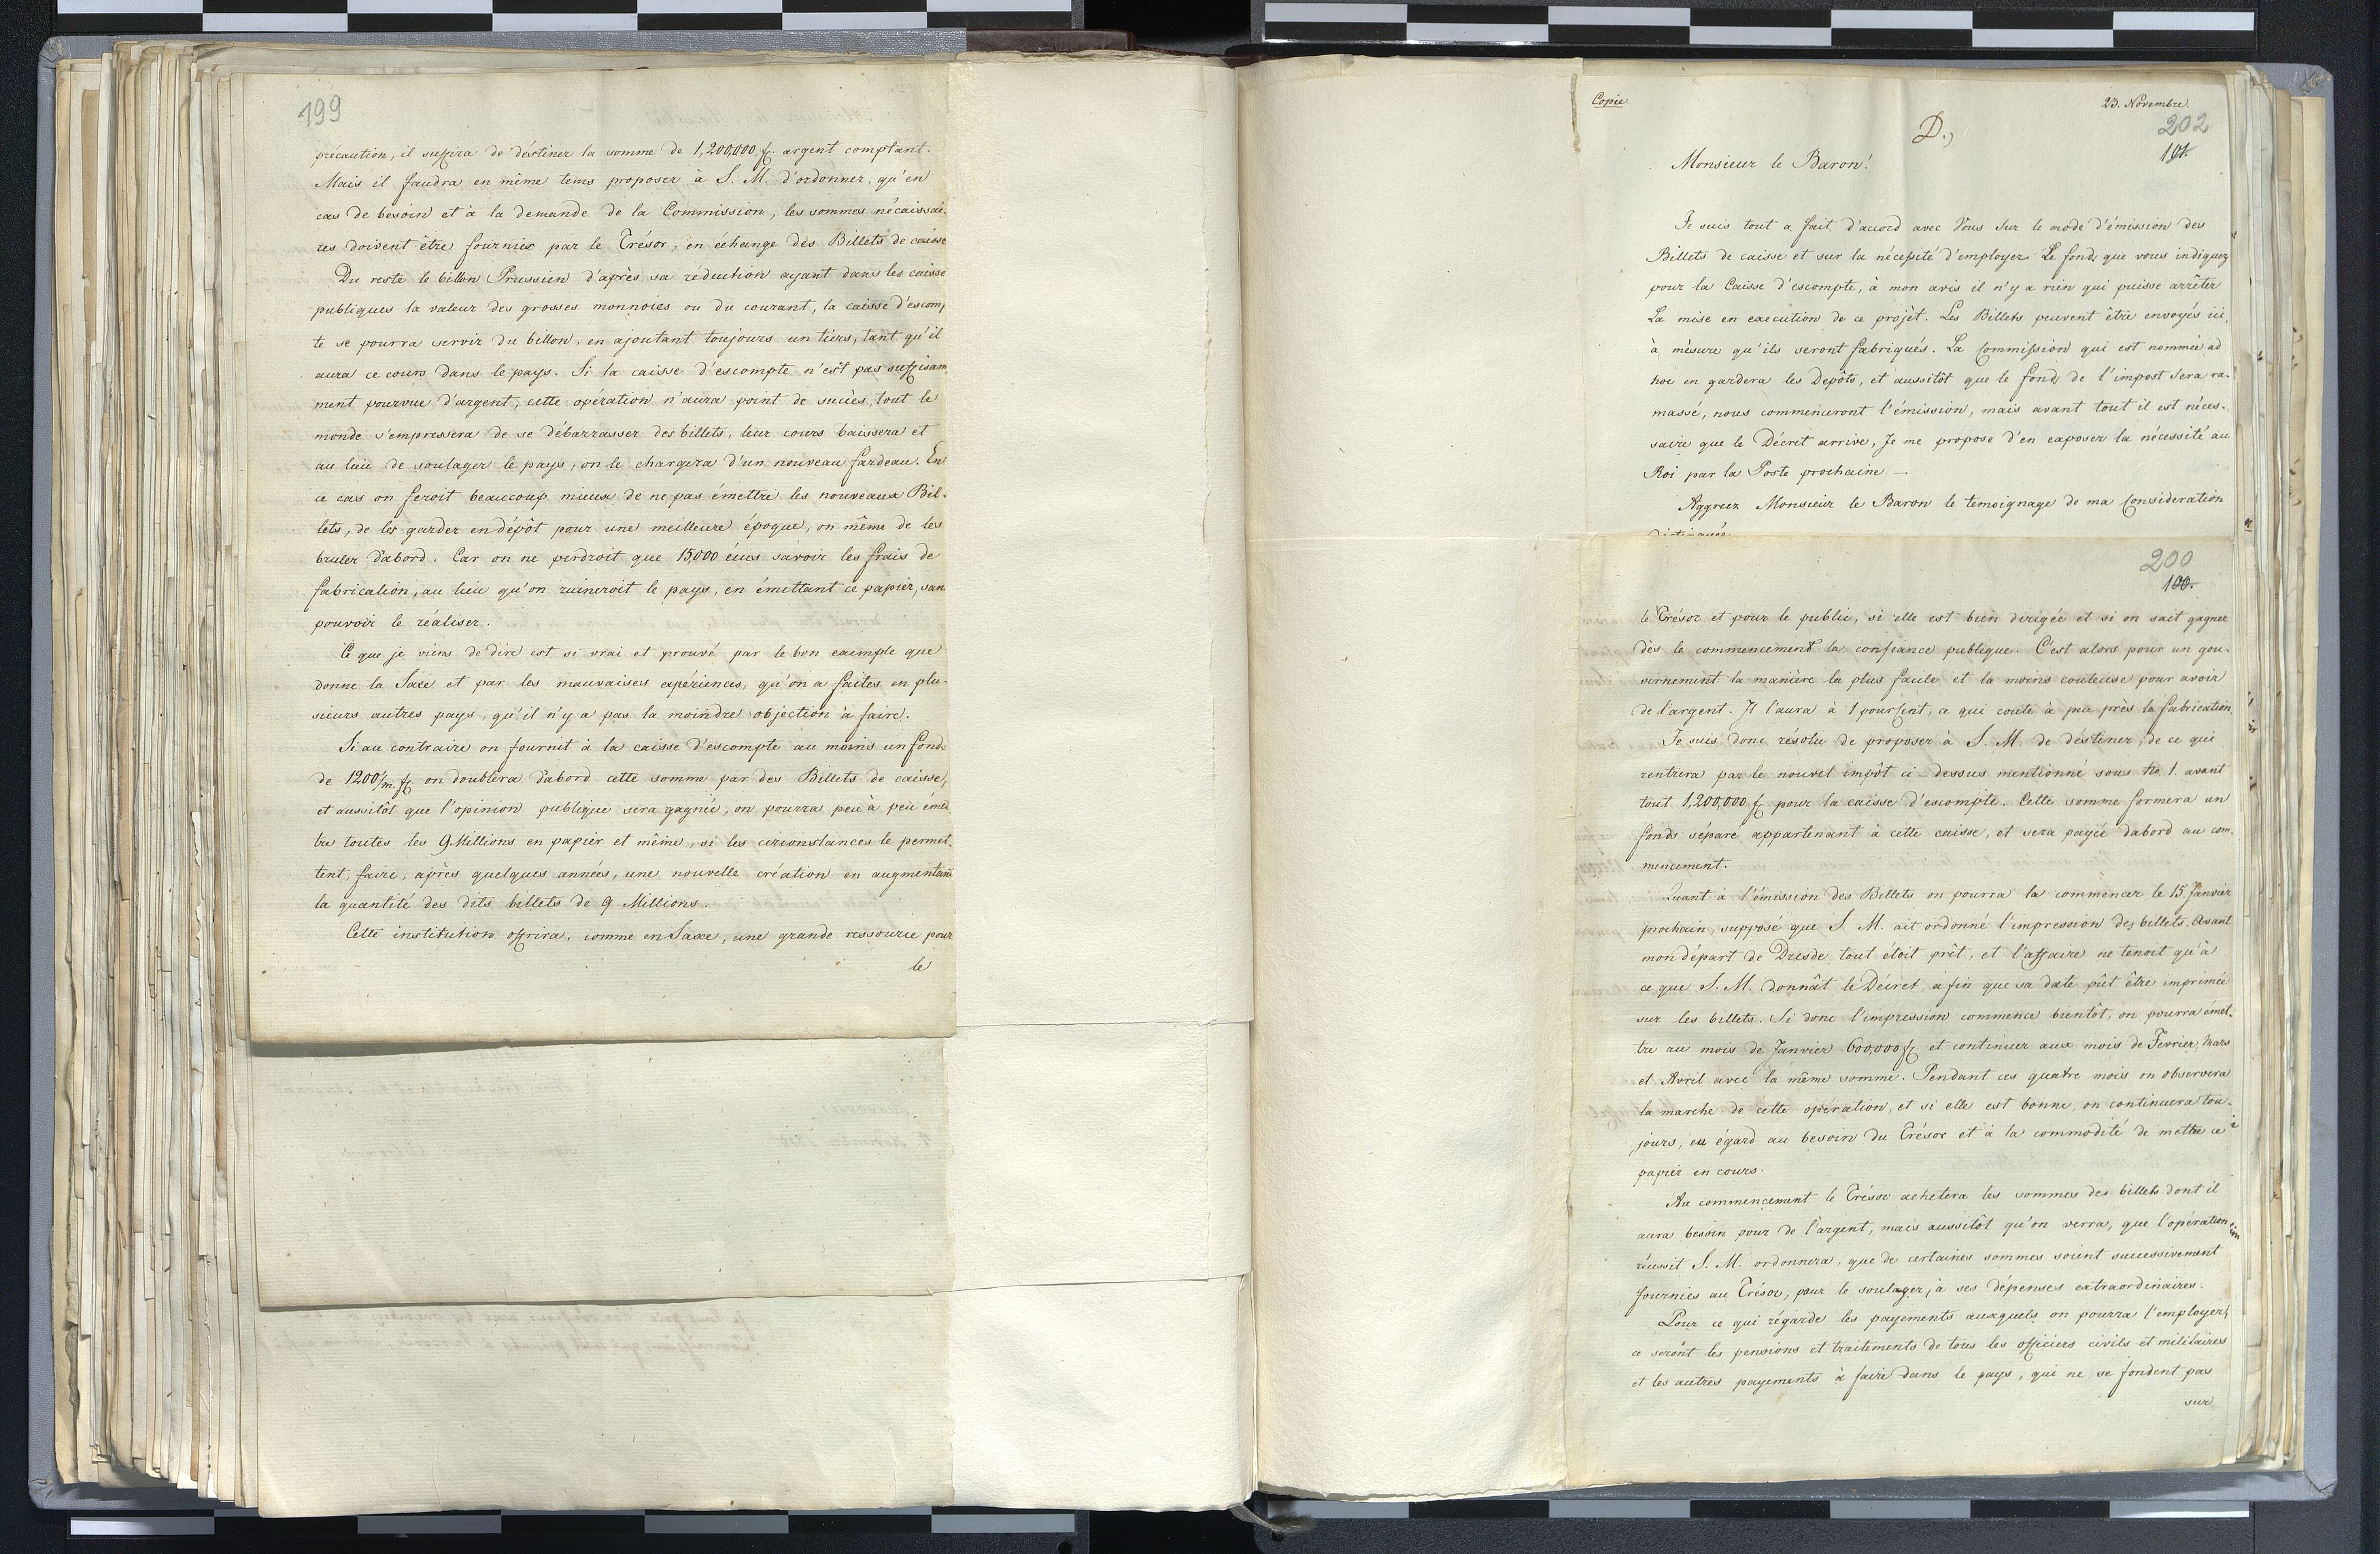 199
précaution, il suffira de déstiner la somme de 1,200,000 fl. argent comptant.
Mais il faudra en même tems proposer à S. M. d'ordonner, qu'en
cas de besoin et à la demande de la Commission, les sommes nécaissai-
res doivent être fournies par le Trésor, en échange des Billets de caisse
Du reste le billon Prussien d'après sa réduction ayant dans les caisse
publiques la valeur des grosses monnoies ou du courant, la caisse d'escom,
te se pourra servir du billon, en ajoutant toujours un tiers, tant qu'il
aura ce cours dans le pays. Si la caisse d'escompte n'est pas suffisam
ment pourvue d'argent, cette opération n'aura point de succès, tout le
monde s'empressera de se débarrasser des billets, leur cours baissera et
au lieu de soulager le pays, on le chargera d'un nouveau fardeau. En
ce cas on feroit beaucoup mieux de ne pas émettre les nouveaux Bil-
lets, de les garder en dépôt pour une meilleure époque, on même de les
bruler d'abord. Car on ne perdroit que 15,000 écus savoir les frais de
fabrication, au lieu qu'on ruineroit le pays, en émettant ce papier, san
pouvoir le réaliser.
Ce que je viens de dire est si vrai et prouvé par le bon exemple que
donne la Saxe et par les mauvaises expériences, qu'on a faites en plu-
sieurs autres pays, qu'il n'y a pas la moindre objection à faire.
Si au contraire on fournit à la caisse d'escompte au moins un fond
de 1200/m. fl. on doublera d'abord cette somme par des Billets de caisse,
et aussitôt que l'opinion publique sera gagnée, on pourra peu à peu émet
tre toutes les 9 Millions en papier et même, si les circonstances le permet-
tent, faire, après quelques années, une nouvelle création en augmentant
la quantité des dits billets de 9 Millions.
Cette institution offrira, comme en Saxe, une grande ressource pour
le
Copie
23. Novembre.
D.,
202
101.
Monsieur le Baron!
Je suis tout a fait, d'accord avec Vous sur le mode d'émission des
Billets de caisse et sur la nécessité d'employer Le fond que vous indiquez
pour la Caisse d'escompte, à mon avis il n'y a rien qui puisse arrêter
La mise en execution de ce projét. Les Billets peuvent être envoyés ici,
à mésure qu'ils seront fabriqués. La Commission qui est nommée ad
hoc en gardera les Depôts, et aussitôt que le fond de l'impost sera ra-
massé, nous commenceront l'émission, mais avant tout il est néces-
saire que le Décrèt arrive, Je me propose d'en exposer la nécessité au
Roi par la Poste prochaine. —
Aggreez Monsieur le Baron le temoignage de ma Consideration
distinguée.
200
100.
le Trésor et pour le public, si elle est bien dirigée et si on sait gagner
dès le commencement la confiance publique. C'est alors pour un gou-
vernement la manière la plus facile et la moins couteuse pour avoir
de l'argent. Il l'aura à 1 pourCent, ce qui coute à peu près la fabrication.
Je suis donc résolu de proposer à S. M. de déstiner, de ce qui
rentrera par le nouvel impôt ci-dessus mentionné sous No 1. avant
tout 1,200,000 fl. pour la caisse d'escompte. Cette somme formera un
fonds séparé appartenant à cette caisse, et sera payée d'abord au com-
mencement.
Quant à l'émission des Billets on pourra la commencer le 15 Janvier
prochain, supposé que S. M. ait ordonné l'impression des billets. Avant
mon départ de Dresde tout étoit prêt, et l'affaire ne tenoit qu'à
ce que S. M. donnât le Décret, afin que sa date pût être imprimée
sur les billets. Si donc l'impression commence bientôt, on pourra émet-
tre au mois de Janvier 600,000 fl. et continuer aux mois de Fevrier, Mars
et Avril avec la même somme. Pendant ces quatre mois on observera
la marche de cette opération, et si elle est bonne, on continuera tou-
jours, eu égard au besoin du Trésor et à la commodité de mettre ce
papier en cours.
Au commencement le Trésor achetera les sommes des billets dont il
aura besoin pour de l'argent, mais aussitôt qu'on verra, que l'opération
réussit S. M. ordonnera, que de certaines sommes soient successivement
fournies au Trésor, pour le soulager, à ses dépenses extraordinaires.
Pour ce qui régarde les payements auxquels on pourra l'employer,
ce seront les pensions et traitements de tous les officiers civils et militaires
et les autres payements à faire dans le pays, qui ne se fondent pas
sur